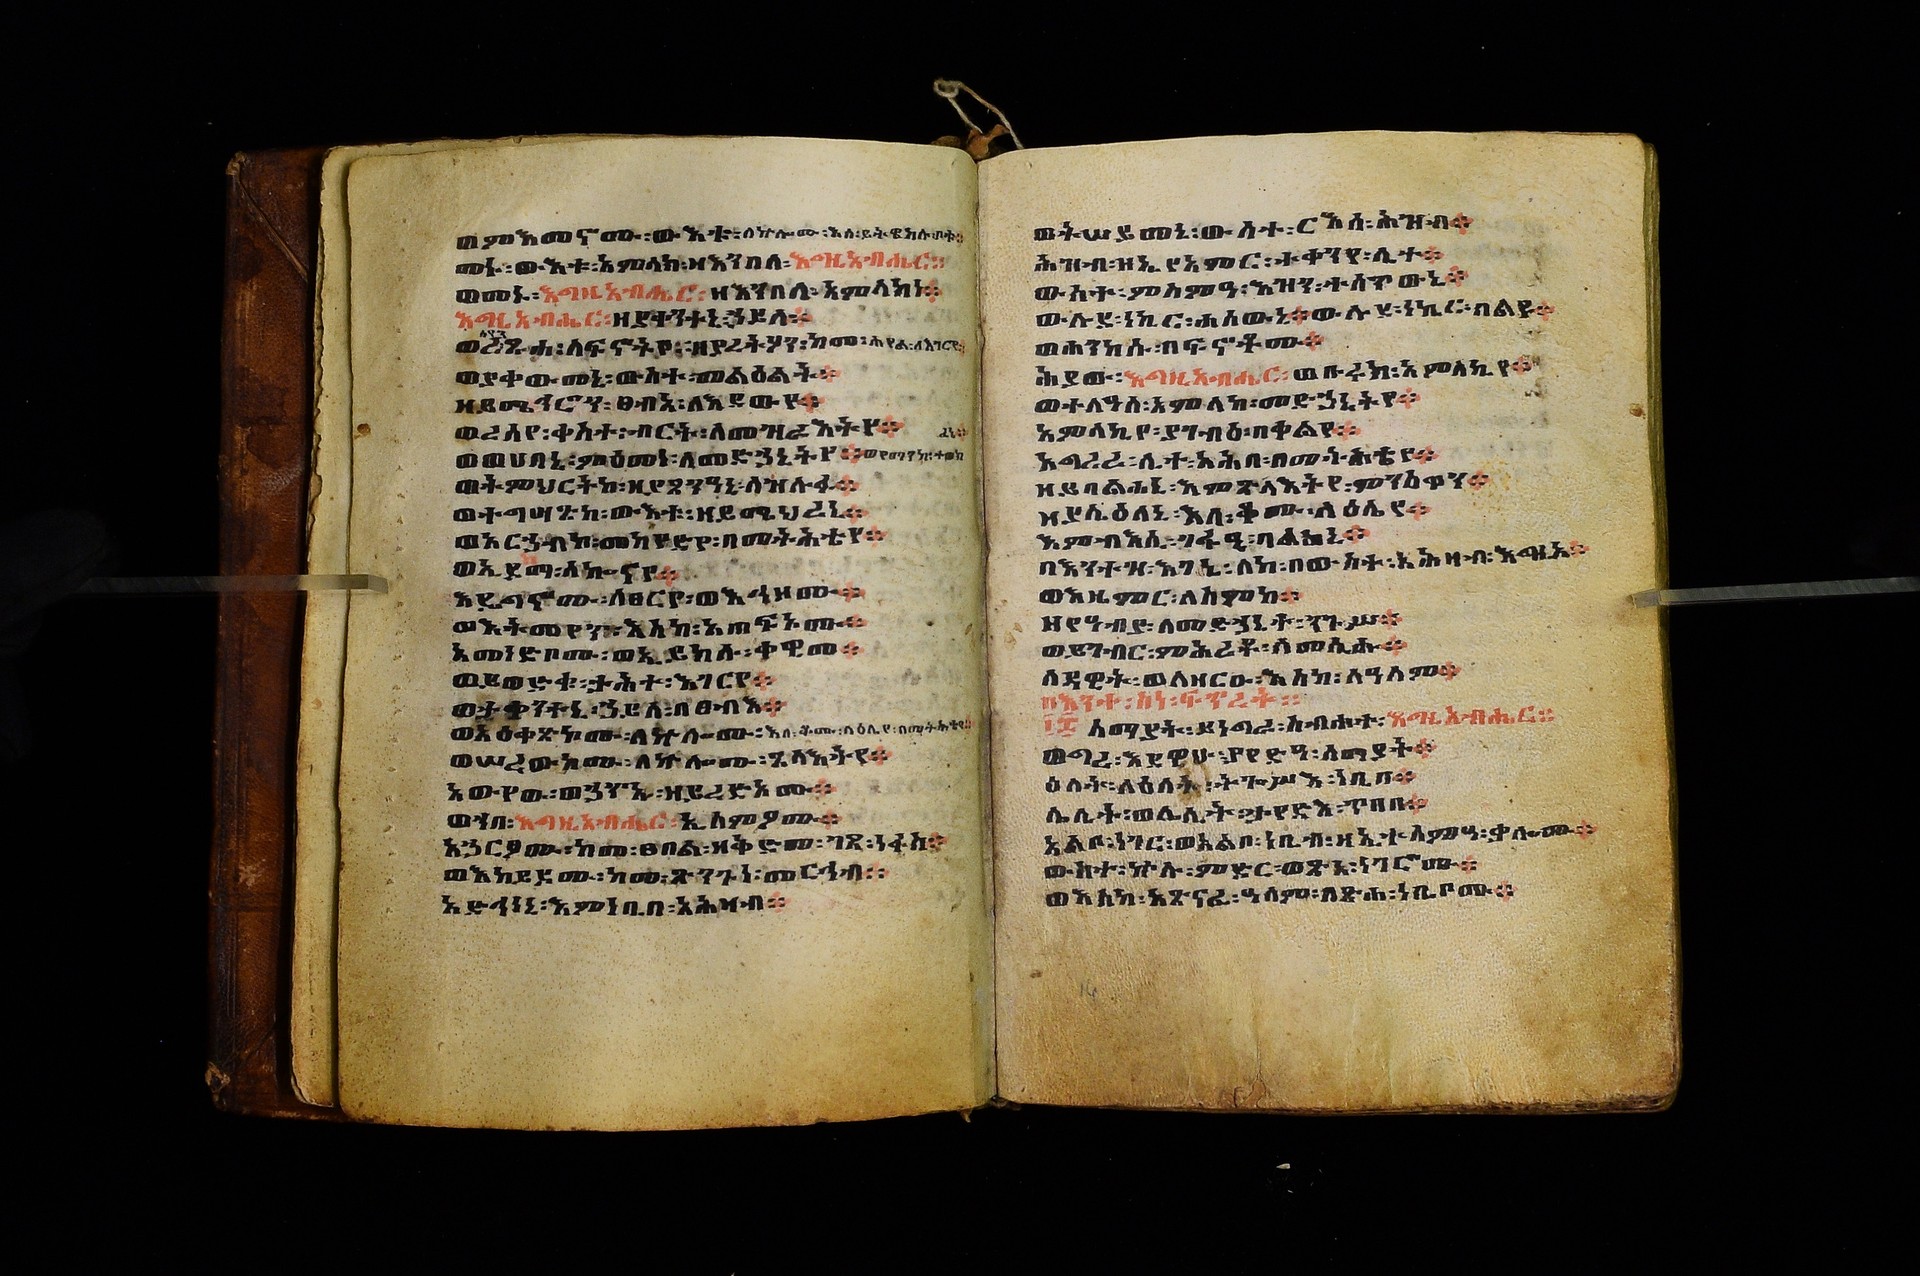 ወምእመኖሙ፡ውእቱ፡ለኵሎሙ፡እለ፡ይትዌከሉ፡ቦቱ።
መኑ፡ውእቱ፡አምላክ፡ዘእንበለ፡እግዚአብሔር።
ወመኑ፡እግዚአብሔር፡ዘእንበለ፡አምላክነ።
እግዚአብሔር፡ዘያቀንተኒ፡ኃይለ።
ለፍኖትየ፡ዘያረትዖን፡ከመ፡ሕየል፡ለእገርየ።
ወያቀውመኒ፡ውስተ፡መልዕልት።
ዘይሜህሮን፡ፀብአ፡ለእደውየ።
ወረሰየ፡ቀስተ፡ብርት፡ለመዝራእትየ።
ወወሀበኒ፡ምዕመነ፡ለመድኃኒትየ።ወየማንከ፡ተወክ
ፈኒ።
ወትምህርትከ፡ዘያጸንዓኒ፡ለዝሉፋ።
ወተግሣጽከ፡ውእቱ፡ዘይሜህረኒ።
ወአርኃብከ፡መከየድየ፡በመትሕቴየ።
ወኢደክማ፡ሰኰናየ።
እዴግኖሙ፡ለፀርየ፡ወእኅዞሙ።
ወእትመየጥ፡እስከ፡አጠፍኦሙ።
አመነድቦሙ፡ወኢይክሉ፡ቀዊመ።
ወይወድቁ፡ታሕተ፡እገርየ።
ወትቀንተኒ፡ኃይለ፡በፀብእ።
ወአዕቀጽኮሙ፡ለኵሎሙ፡እለ፡ቆሙ፡በዕሌየ፡በመትሕቴየ።
ወሠረውኮሙ፡ለኵሎሙ፡ጸላእትየ።
አውየው፡ወኃጥኡ፡ዘይረድኦሙ።
ወኀበ፡እግዚአብሔር፡ኢሰምዖሙ።
አኀርፆሙ፡ከመ፡ፀበል፡ዘቅድመ፡ገጸ፡ነፋስ።
ወእከይዶሙ፡ከመ፡ጽንጕነ፡መርኅብ።
አድኅነኒ፡እምነቢበ፡አሕዛብ።
ወትሠይመኒ፡ውስተ፡ርእሰ፡ሕዝብ።
ሕዝብ፡ዘኢየአምር፡ተቀንየ፡ሊተ።
ውስተ፡ምስምዓ፡እዝን፡ተሰጥውኒ።
ውሉደ፡ነኪር፡ሐሰውኒ።ውሉደ፡ነኪር፡በልዩ።
ወሐንከሱ፡በፍኖቶሙ።
ሕያው፡እግዚአብሔር፡ወቡሩክ፡አምላኪየ።
ወተለዓለ፡አምላከ፡መድኃኒትየ።
አምላኪየ፡ያገብዕ፡በቀልየ።
አግረረ፡ሊተ፡አሕዛበ፡በመትሕቴየ።
ዘይባልሐኒ፡እምጸላእትየ፡ምንስዋን።
ወያሌዕለኒ፡እለ፡ቆሙ፡ላዕሌየ።
እምብእሲ፡ገፋዒ፡ባልሐኒ።
በእንተዝ፡እገኒ፡ለከ፡በውስተ፡አሕዛብ፡እግዚኦ።
ወእዜምር፡ለስምከ።
ዘየዓብያ፡ለመድኃኒተ፡ንጉሥ።
ወይገብር፡ምሕረቶ፡ለመሲሑ።
ለዳዊት፡ወለዘርዑ፡እስከ፡ለዓለም።
በእንተ፡ስነ፡ፍጥረት።
፲፰ ሰማያት፡ይነግራ፡ስብሐተ፡እግዚአብሔር።
ወግብረ፡እደዊሁ፡ያየድዓ፡ሰማያት።
ዕለት፡ለዕለት፡ትጐሥእ፡ነቢበ።
ሌሊት፡ወሌሊት፡ታየድእ፡ጥበበ።
አልቦ፡ነገር፡ወአልቦ፡ነቢብ፡ዘኢተሰምዓ፡ቃሎሙ።
ውስተ፡ኵሉ፡ምድር፡ወፅአ፡ነገሮሙ።
ወእስከ፡አጽናፈ፡ዓለም፡በጽሐ፡ነቢቦሙ።